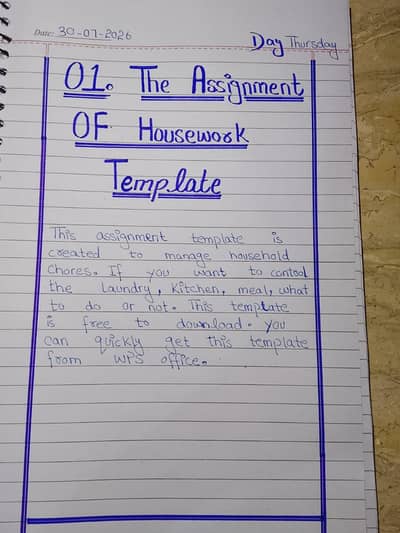 Date: 30-07-2026
Day Thursday
01. The Assignment
OF Housework
Template
This assignment template is
created to manage household
chores. If you want to contool
the laundry, kitchen, meal, what
to do or not. This template
is free to download. you
can quickly get this template
from WPS office.